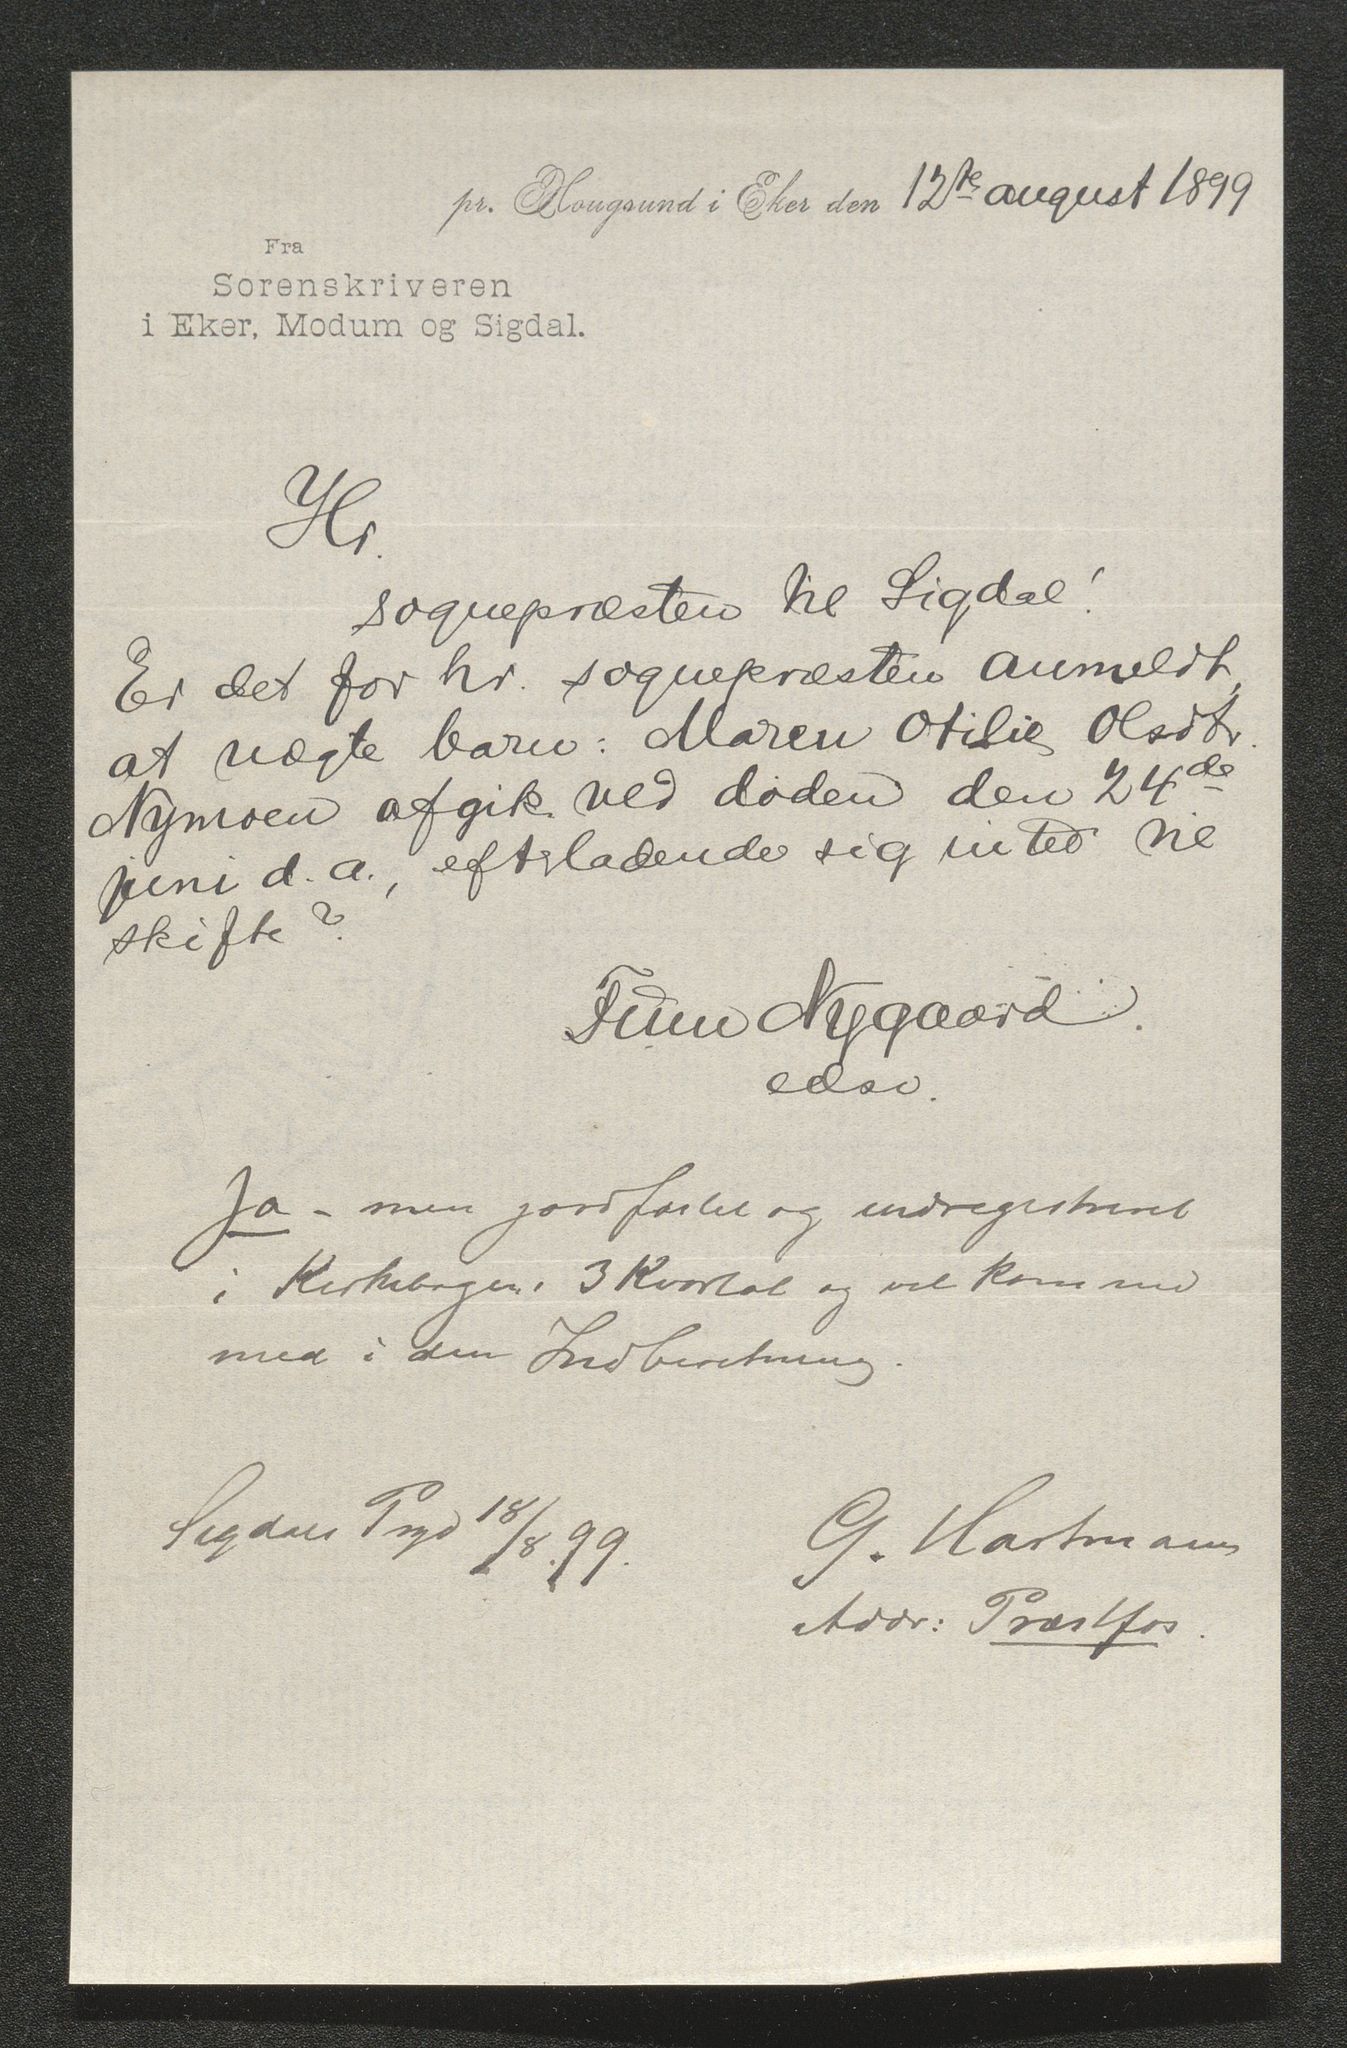 pr. Hougsund i Eker den 12te august 1899
Fra
Sorenskriveren
i Eker, Modum og Sigdal.
Hr.
sognepræsten til Sigdal!
Er det for hr. sognepræsten anmeldt,
at uægte barn: Maren Otilie Olsdtr.
Nymoen afgik ved døden den 24de
juni d. a., efterladende sig intet til
skifte?
Finn Nygaard
edsv.
Ja - men jordfæstet og indregistreret
i Kirkebogen i 3 Kvartal og vil komme
med i den Indberetning.
Sigdals Prgd 18/8.99.
G. Hartmann
Addr: Præstfos.